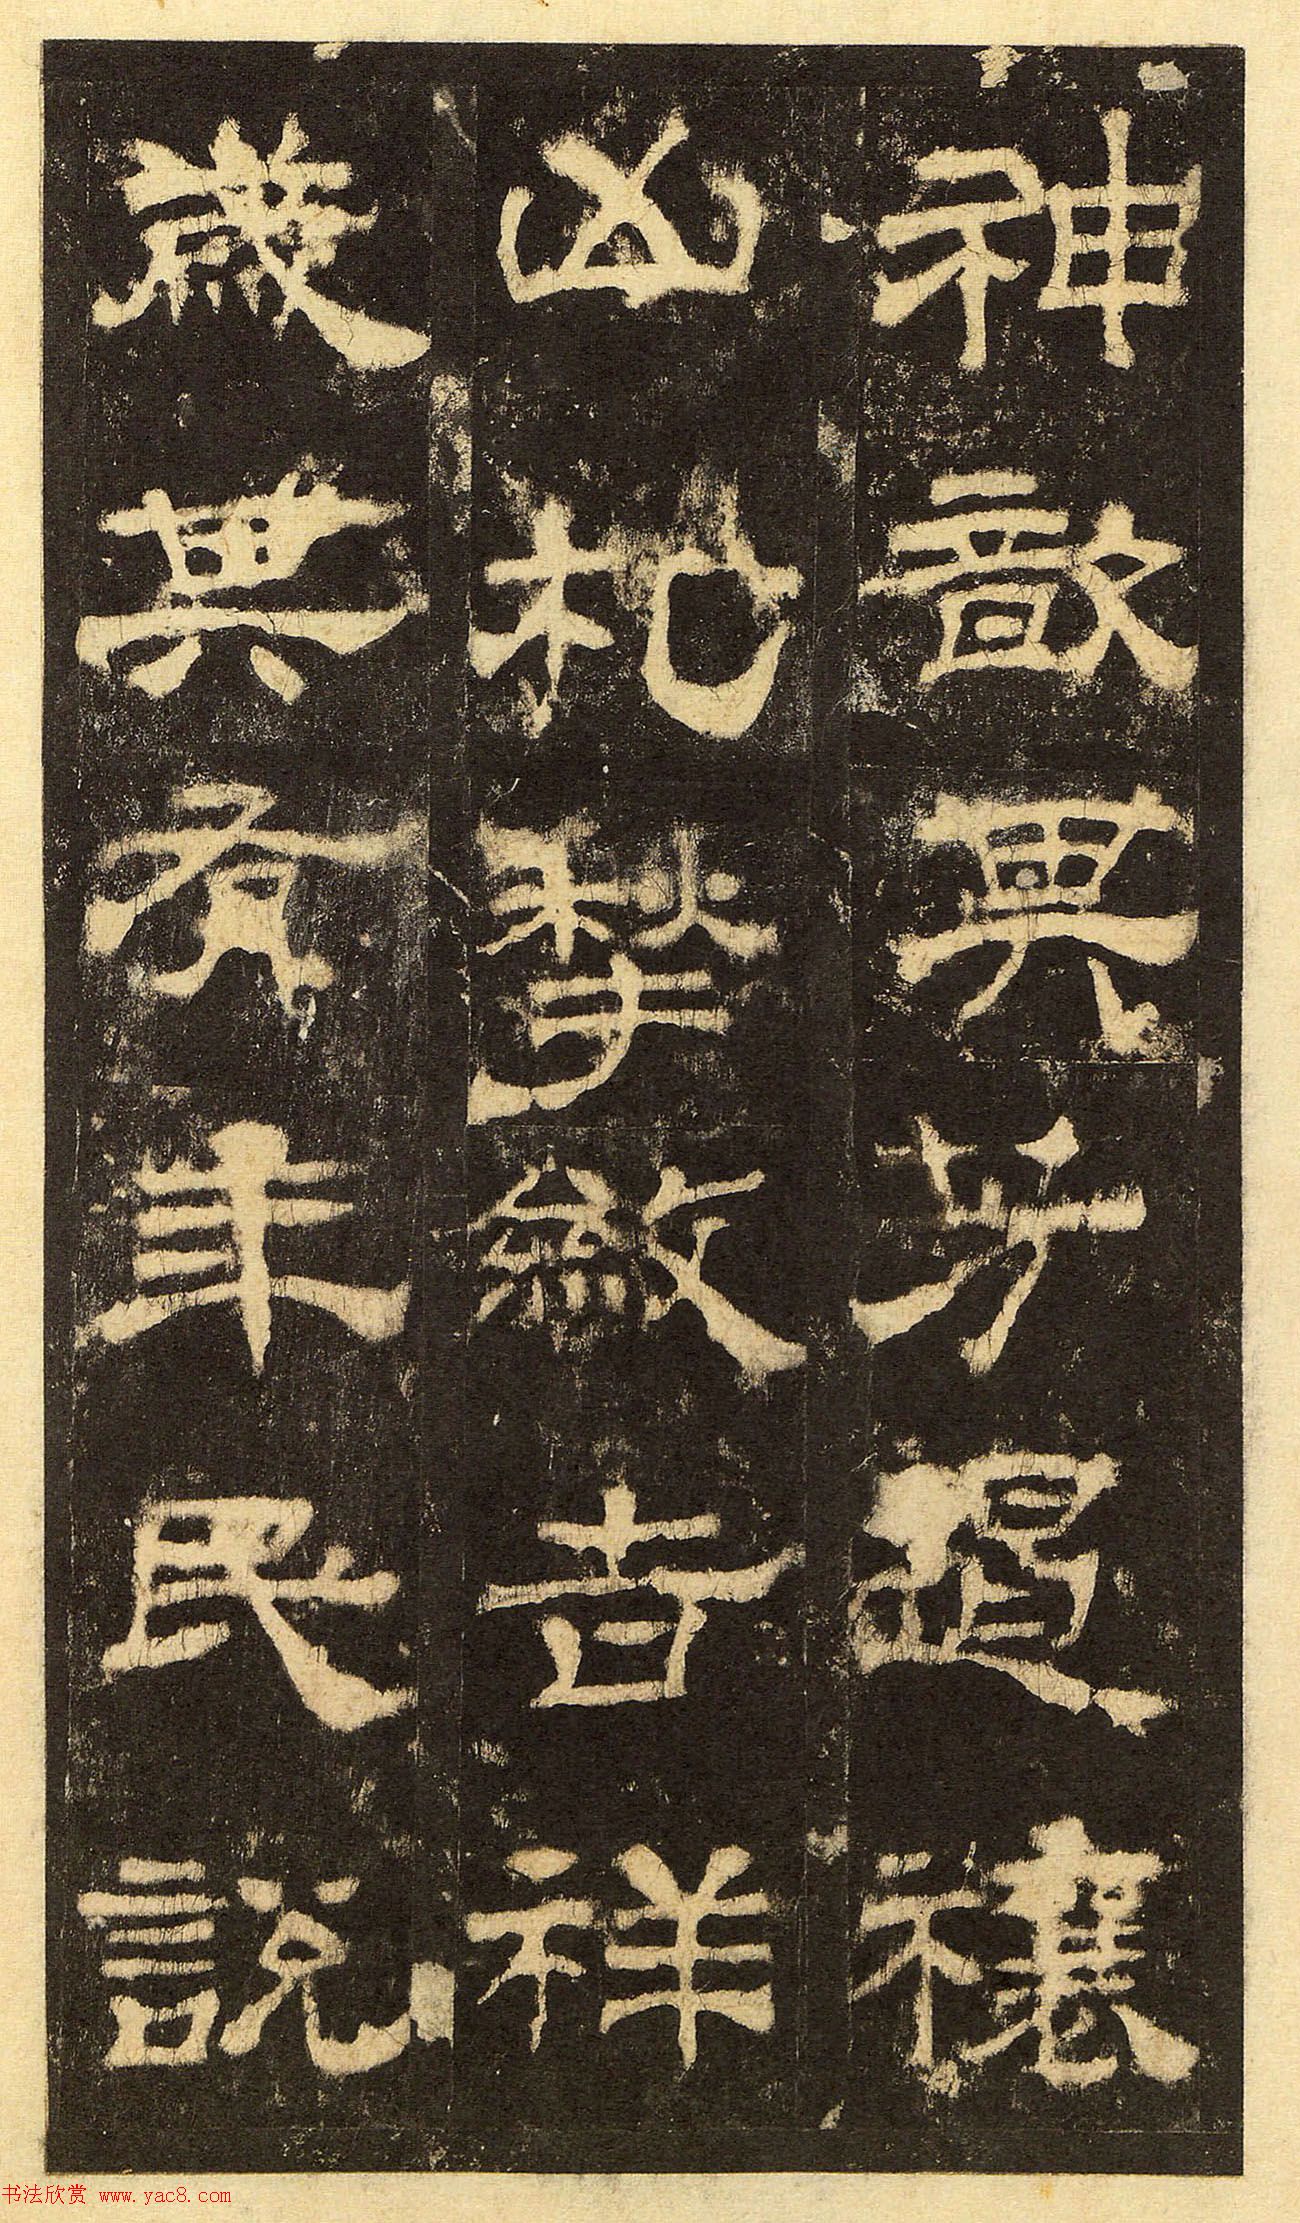 神歆其芳遏禳
凶札揫斂吉祥
歲其有年民說
书法欣赏 www.yac8.com